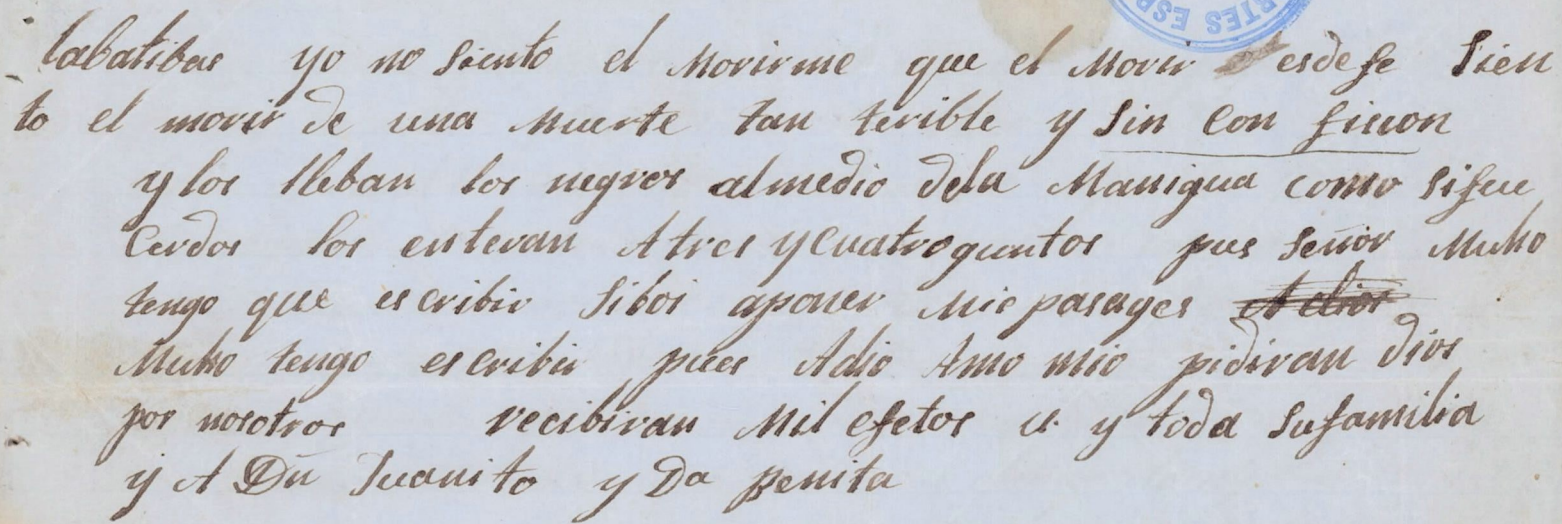 RTES ESP
labatibas yo no siento el Morirme que el Morir esdefe Sien
to el morir de una Muerte tan terible y Sin Con ficion
y los lleban los negros almedio dela Manigua como sifue
Cerdos los enteran A tres y Cuatroguntos pues Señor Muho
tengo que escribir Siboi aponer Mis pasages A dios
Muho tengo escribir pues Adio Amo mio pidiran dios
por nosotros recibiran Mil efetos U. y toda Sufamilia
y A Dn Juanito y Da penita